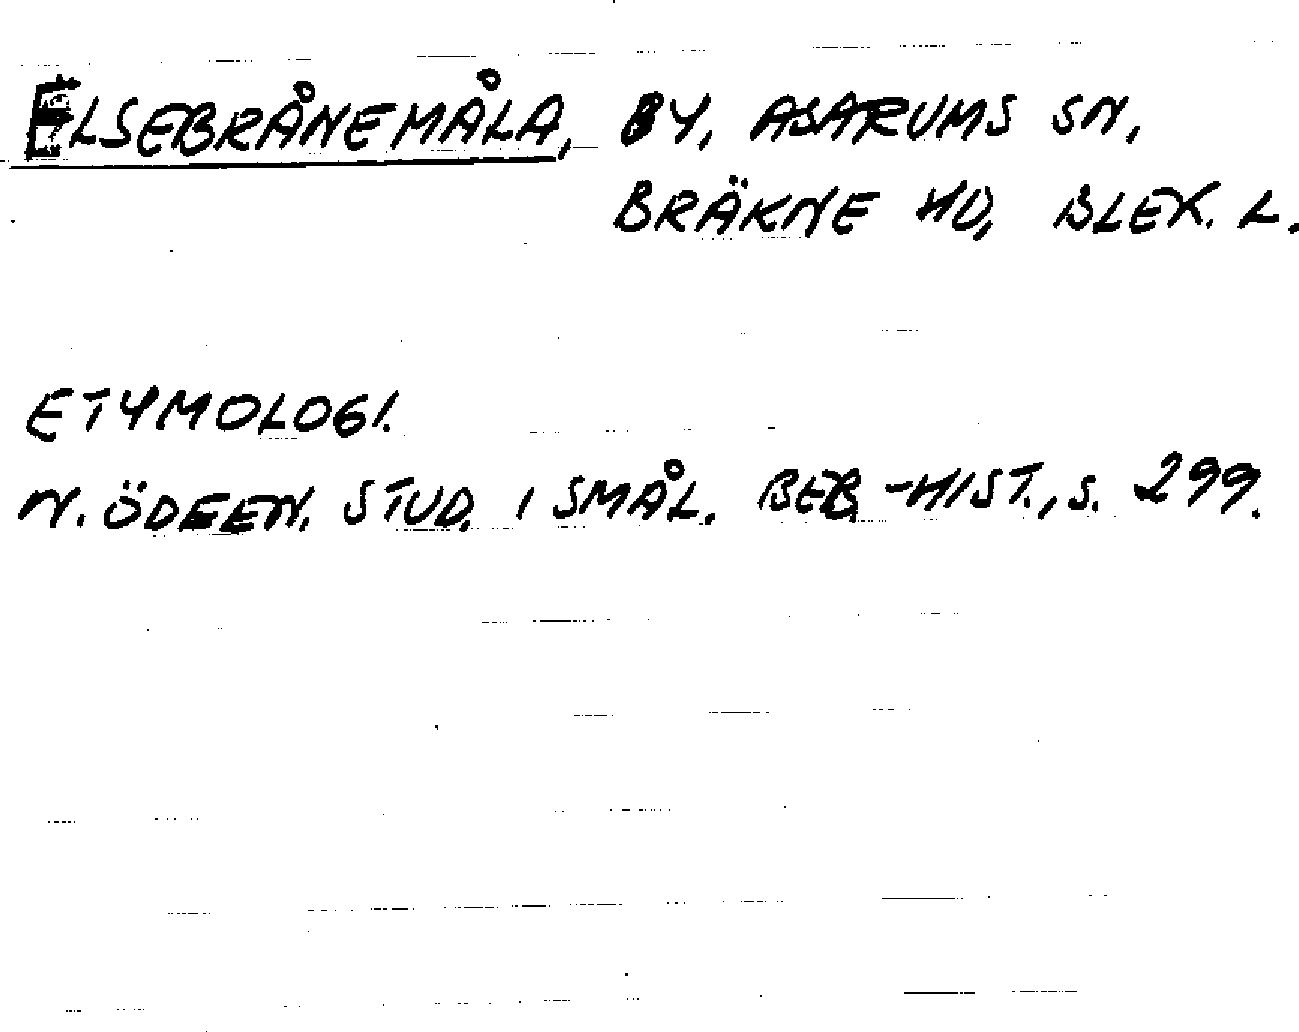 ELSEBRÅNEMÅLA, BY, ASARUMS SN,
BRÄKNE HD, BLEK. L.
ETYMOLOGI.
N. ÖDEEN. STUD. I SMÅL. BEB.-HIST., S. 299.